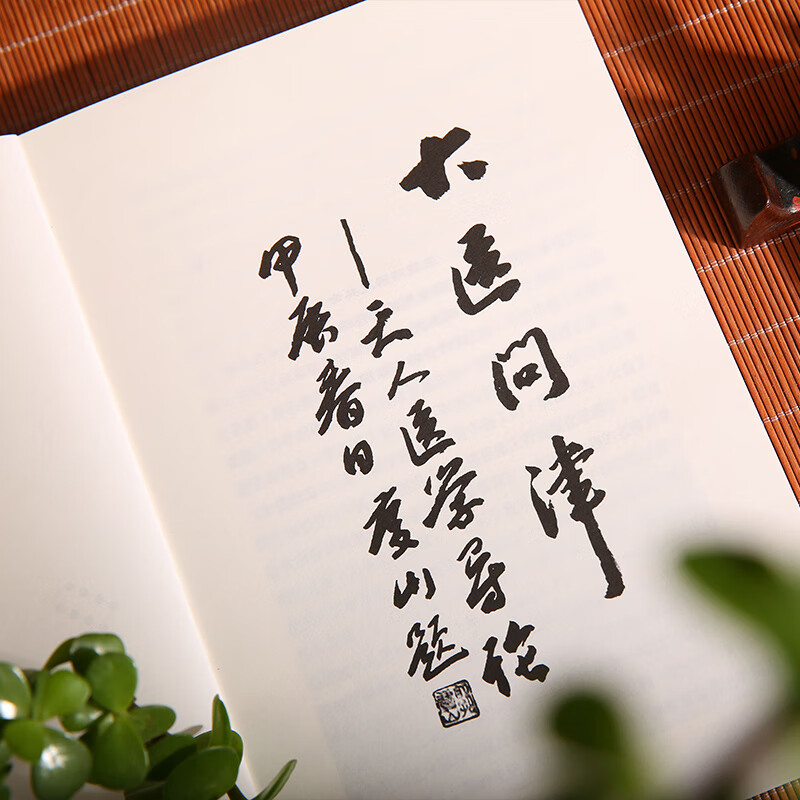 大医问津
—天人医学导论
甲辰春日度山题